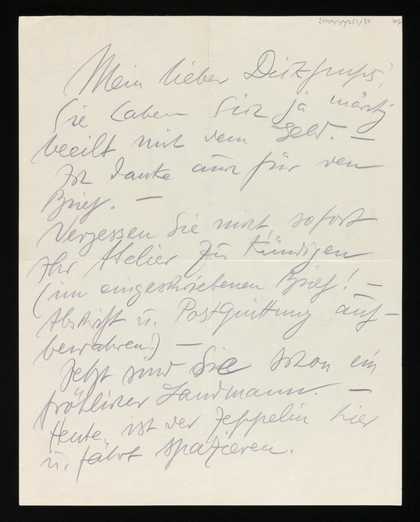 Mein lieber
Sie haben Sich ja mächtig
beeilt mit dem Geld. —
Ich danke auch für den
Brief. —
Vergessen Sie nicht, sofort
Ihr Atelier zu kündigen
(im eingeschriebenen Brief! —
Abschrift u. Postquittung auf-
bewahren!) —
Jetzt sind Sie schon ein
fröhlicher Landmann. —
Heute, ist der Zeppelin hier
u. fährt spazieren.